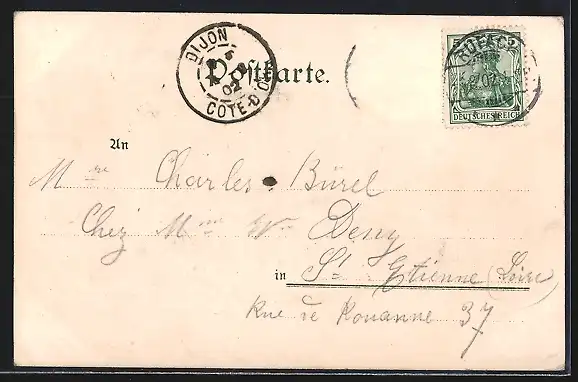 DIJON
6
02
COTE-D'OR
Postkarte.
RUFACH
02
DEUTSCHES REICH
An
Mre Charles Bürel
Chez Mme Wve Deny
in St Etienne (Loire)
Rue de Rouanne 37